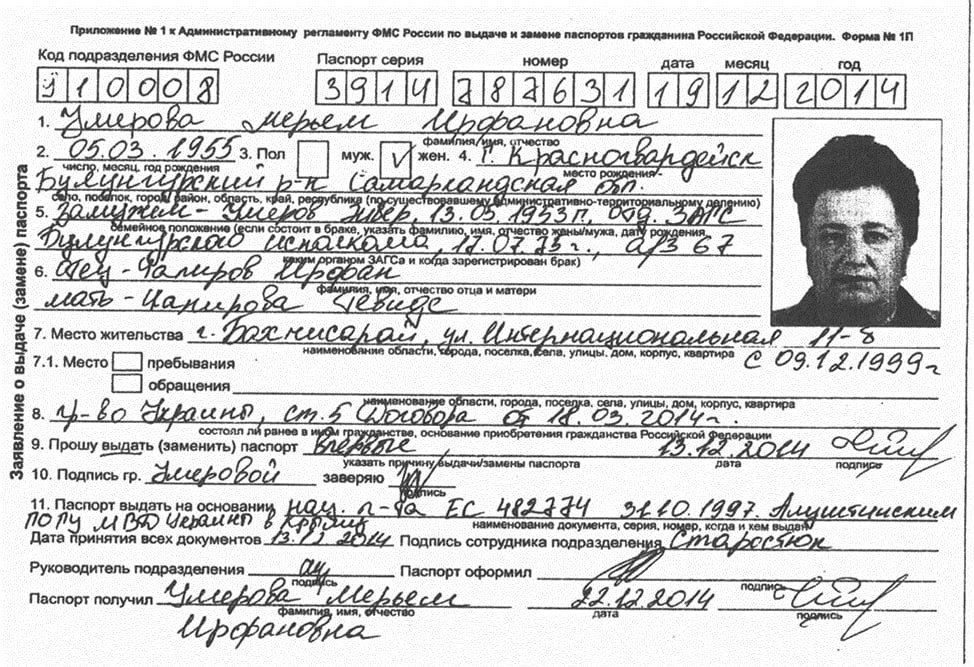 Приложение № 1 к Административному регламенту ФМС России по выдаче и замене паспортов гражданина Российской Федерации. Форма № 1П
Код подразделения ФМС России Паспорт серия номер дата месяц год
910008 3914 787631 19 12 2014
1. Умерова Мерьем Ирфановна
фамилия, имя, отчество
2. 05.03.1955 3. Пол муж. V жен. 4. г. Красногвардейск
число, месяц, год рождения место рождения
Булунгурский р-н Самаркандская обл.
село, поселок, город, район, область, край, республика (по существовавшему административно-территориальному делению)
5. замужем - Умеров Энвер, 13.05.1953г, отд. ЗАГС
семейное положение (если состоит в браке, указать фамилию, имя, отчество жены/мужа, дату рождения,
Булунгурского исполкома, 17.07.73г., а/з 67
каким органом ЗАГСа и когда зарегистрирован брак)
6. Отец - Ирфан
фамилия, имя, отчество отца и матери
мать -
7. Место жительства г. Бахчисарай, ул. Интернациональная 11-8
наименование области, города, поселка, села, улицы, дом, корпус, квартира с 09.12.1999г
7.1. Место пребывания
обращения
наименование области, города, поселка, села, улицы, дом, корпус, квартира
8. гр-во Украины, ст. 5 Договора от 18.03.2014г.
состоял ли ранее в ином гражданстве, основание приобретения гражданства Российской Федерации
9. Прошу выдать (заменить) паспорт впервые 13.12.2014
указать причину выдачи/замены паспорта дата подпись
10. Подпись гр. Умеровой заверяю
подпись
11. Паспорт выдать на основании нац. п-та ЕС 482774 31.10.1997. Алуштинским
наименование документа, серия, номер, когда и кем выдан
МВД Украины в Крыму
Дата принятия всех документов 13.12 2014 Подпись сотрудника подразделения Старостюк
Руководитель подразделения Паспорт оформил
подпись подпись
Паспорт получил Умерова Мерьем 22.12.2014
фамилия, имя, отчество дата подпись
Ирфановна
Заявление о выдаче (замене) паспорта